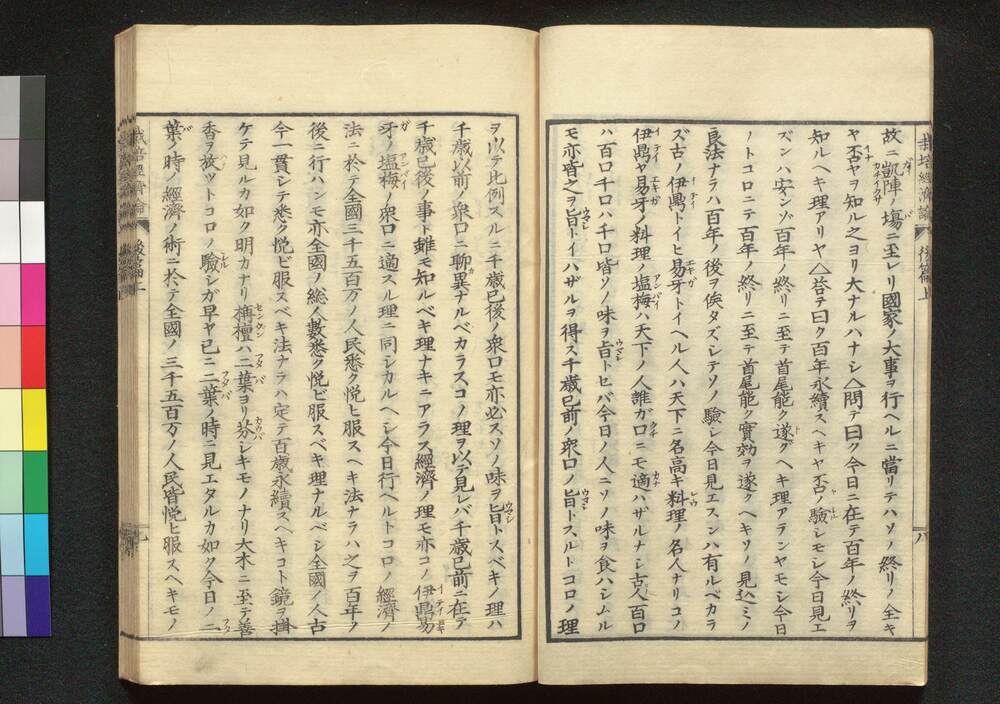 栽培經濟論
後篇上
八
故ニ凱陣ノ場ニ至レリ國家ノ大事ヲ行ヘルニ當リテハソノ終リノ全キ
ヤ否ヤヲ知ル之ヨリ大ナルハナシ△問テ曰ク今日ニ在テ百年ノ終リヲ
知ルヘキ理アリヤ△荅曰ク百年永續スヘキヤ否ノ驗シモシ今日見エ
ズンハ安ンゾ百年ノ終リニ至テ首尾能ク遂グヘキ理アランヤモシ今日
ノトコロニテ百年ノ終リニ至テ首尾能ク實効ヲ遂クヘキソノ見込ミノ
良法ナラハ百年ノ後ヲ俟タズシテソノ驗シ今日見エスンハ有ルベカラ
ズ古ノ伊鼎トイヒ易牙トイヘル人ハ天下ニ名高キ料理ノ名人ナリコノ
伊鼎ヤ易牙ノ料理ノ塩梅ハ天下ノ人誰ガ口ニモ適ハザルナシ古人百口
ハ百口千口ハ千口皆ソノ味ヲ旨トセバ今日ノ人ニソノ味ヲ食ハシムル
モ亦皆之ヲ旨トイハザルヲ得ス千歳已前ノ衆口ノ旨トスルトコロノ理
ヲ以テ比例スルニ千歳已後ノ衆口モ亦必スソノ味ヲ旨トスベキノ理ハ
千歳以前ノ衆口ニ聊異ナルベカラスコノ理ヲ以テ見レバ千歳已前ニ在テ
千歳已後ノ事ト雖モ知ルベキ理ナキニアラス經濟ノ理モ亦コノ伊鼎易
牙ノ塩梅ノ衆口ニ適スル理ニ同シカルヘシ今日行ヘルトコロノ經濟ノ
法ニ於テ全國三千五百万ノ人民悉ク悦ヒ服スヘキ法ナラハ之ヲ百年ヲ
後ニ行ハンモ亦全國ノ総人數悉ク悦ビ服スベキ理ナルベシ全國ノ人古
今一貫シテ悉ク悦ビ服スベキ法ナラハ定テ百歳永續スヘキコト鏡ヲ掛
ケテ見ルカ如ク明カナリ栴檀ハ二葉ヨリ芬シキモノナリ大木ニ至テ善
香ヲ放ツトコロノ驗シガ早ヤ已ニ二葉ノ時ニ見エタルカ如ク今日ノ二
葉ノ時ノ經濟ノ術ニ於テ全國ノ三千五百万ノ人民皆悦ヒ服スヘキモノ
栽培經濟論
後篇上
九